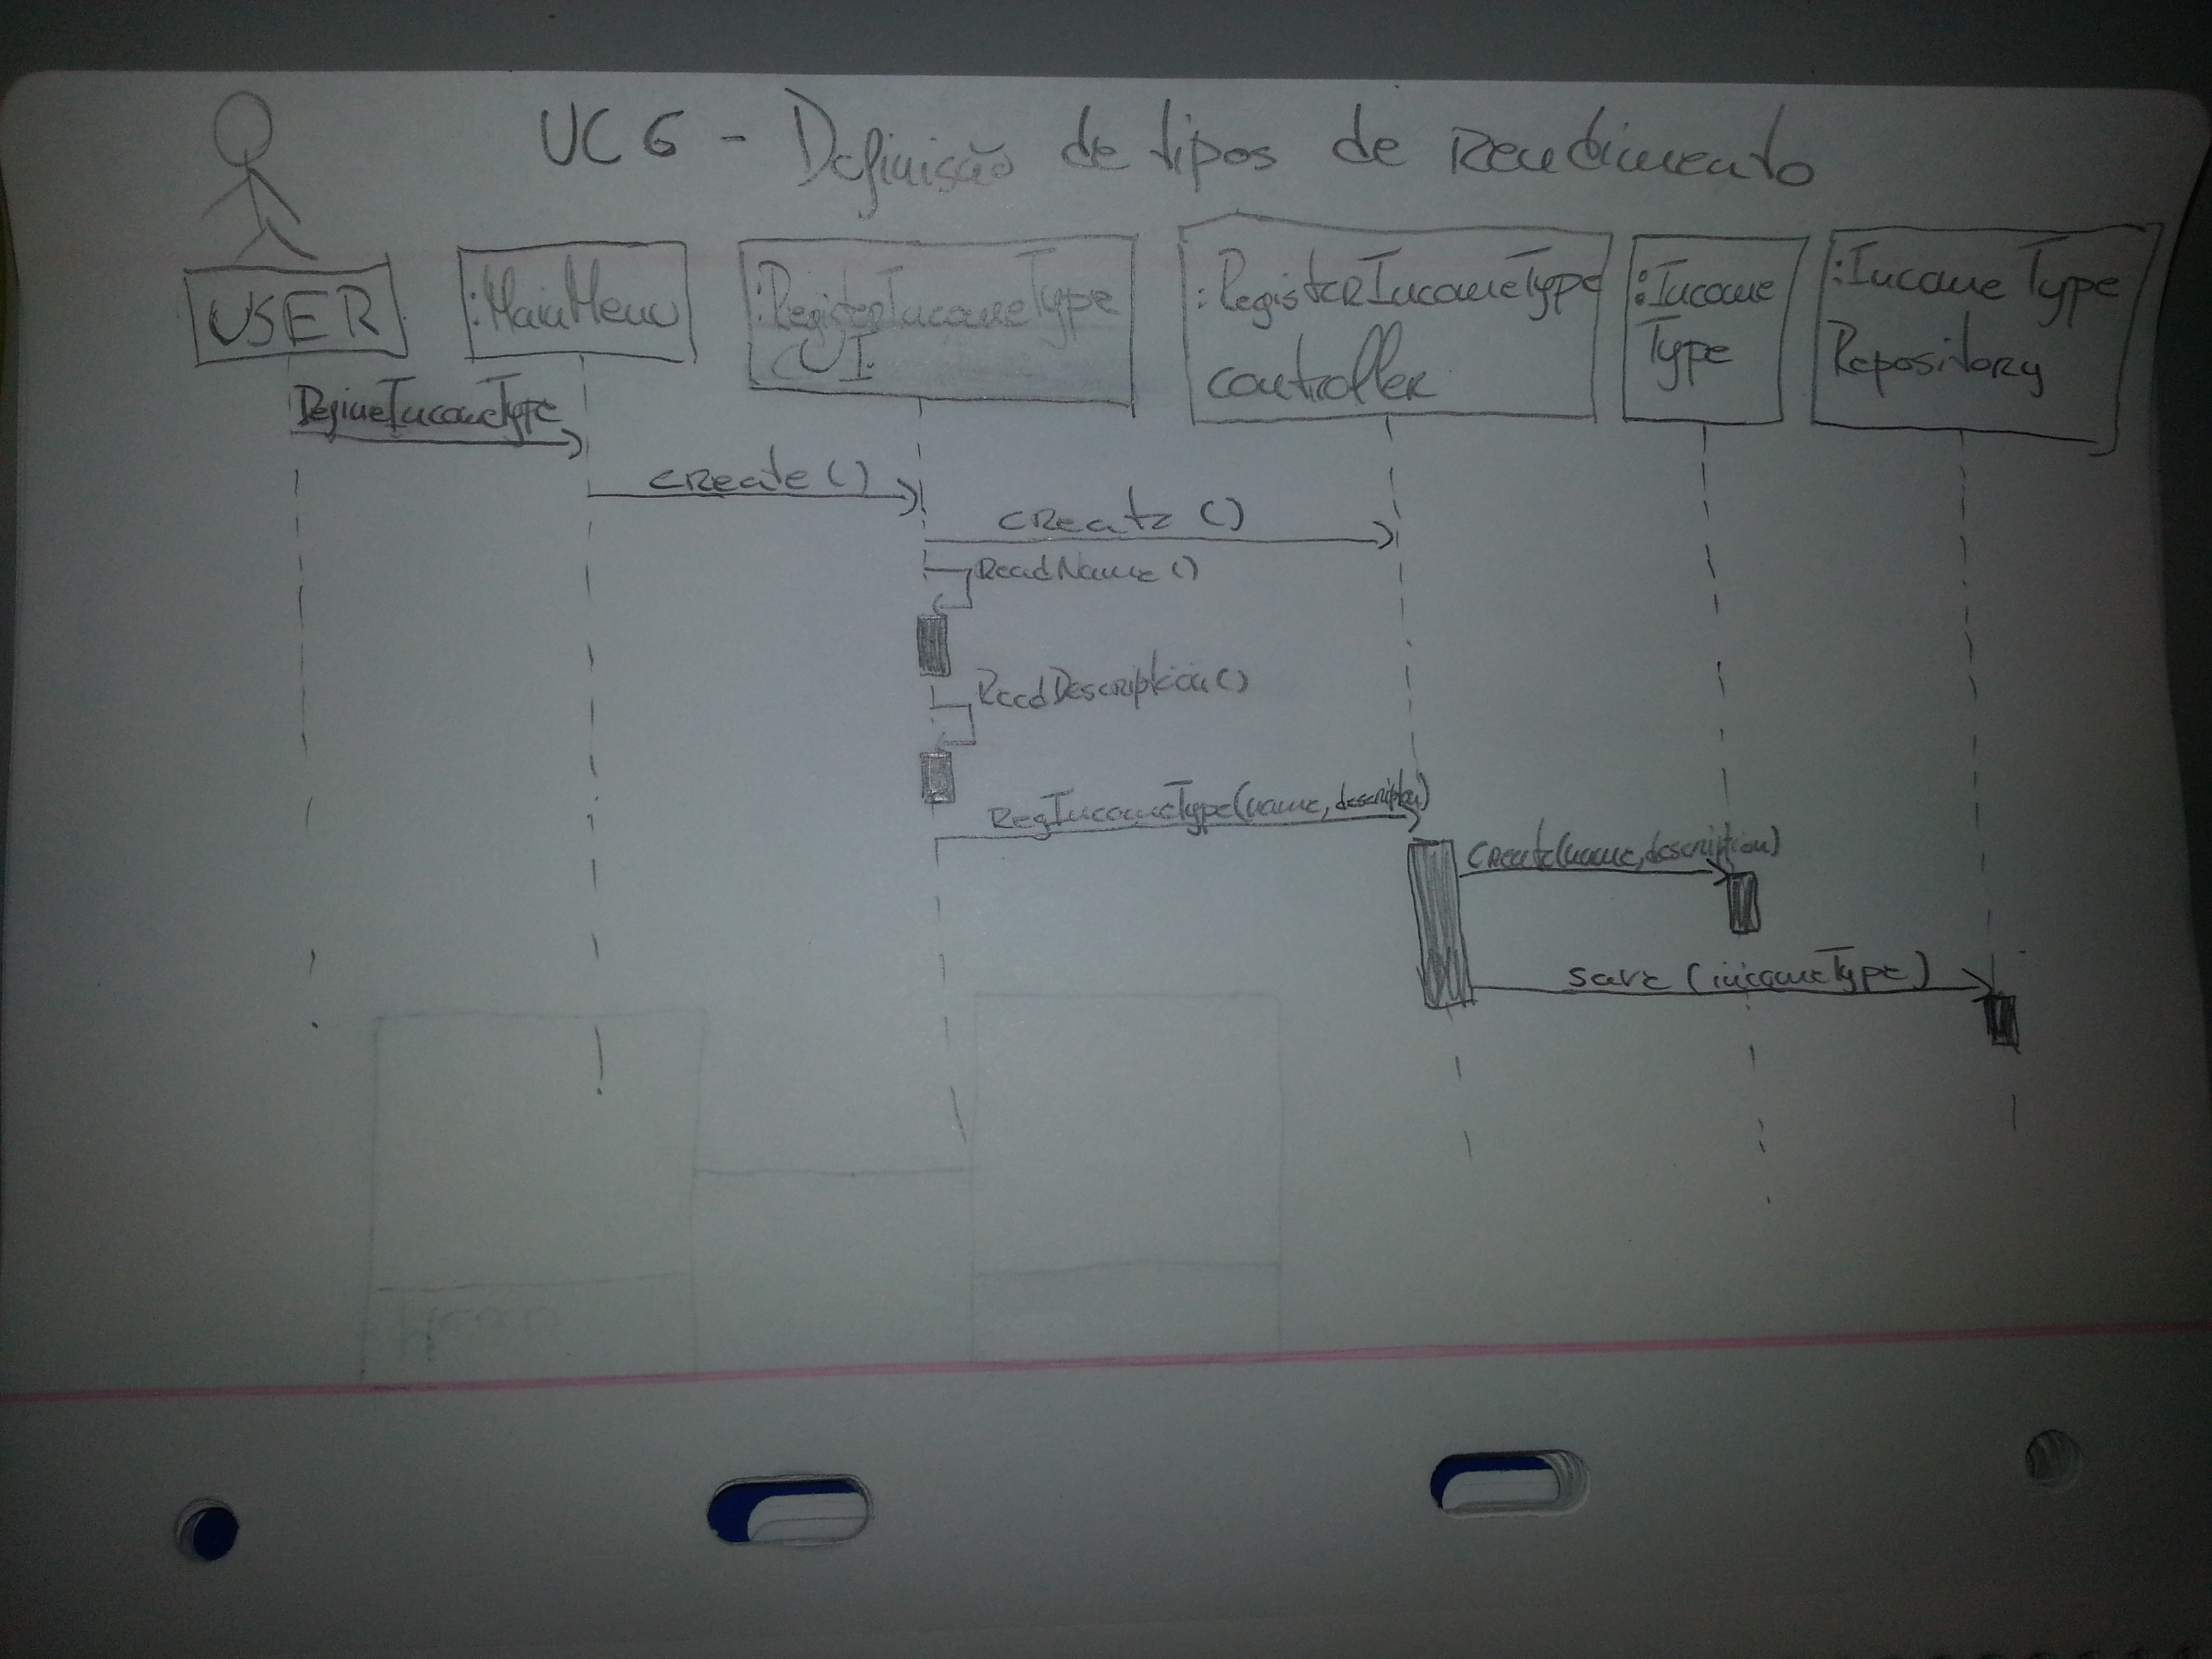 UC6 - Definisão de tipos de Rendimento
USER
:MainMenu
:RegisterIncomeType
UI
:RegisterIncomeType
controller
:Income
Type
:Income Type
Repository
DefineIncomeType
create()
create()
ReadName()
ReadDescription()
RegIncomeType(name, description)
Create(name, description)
save (incomeType)